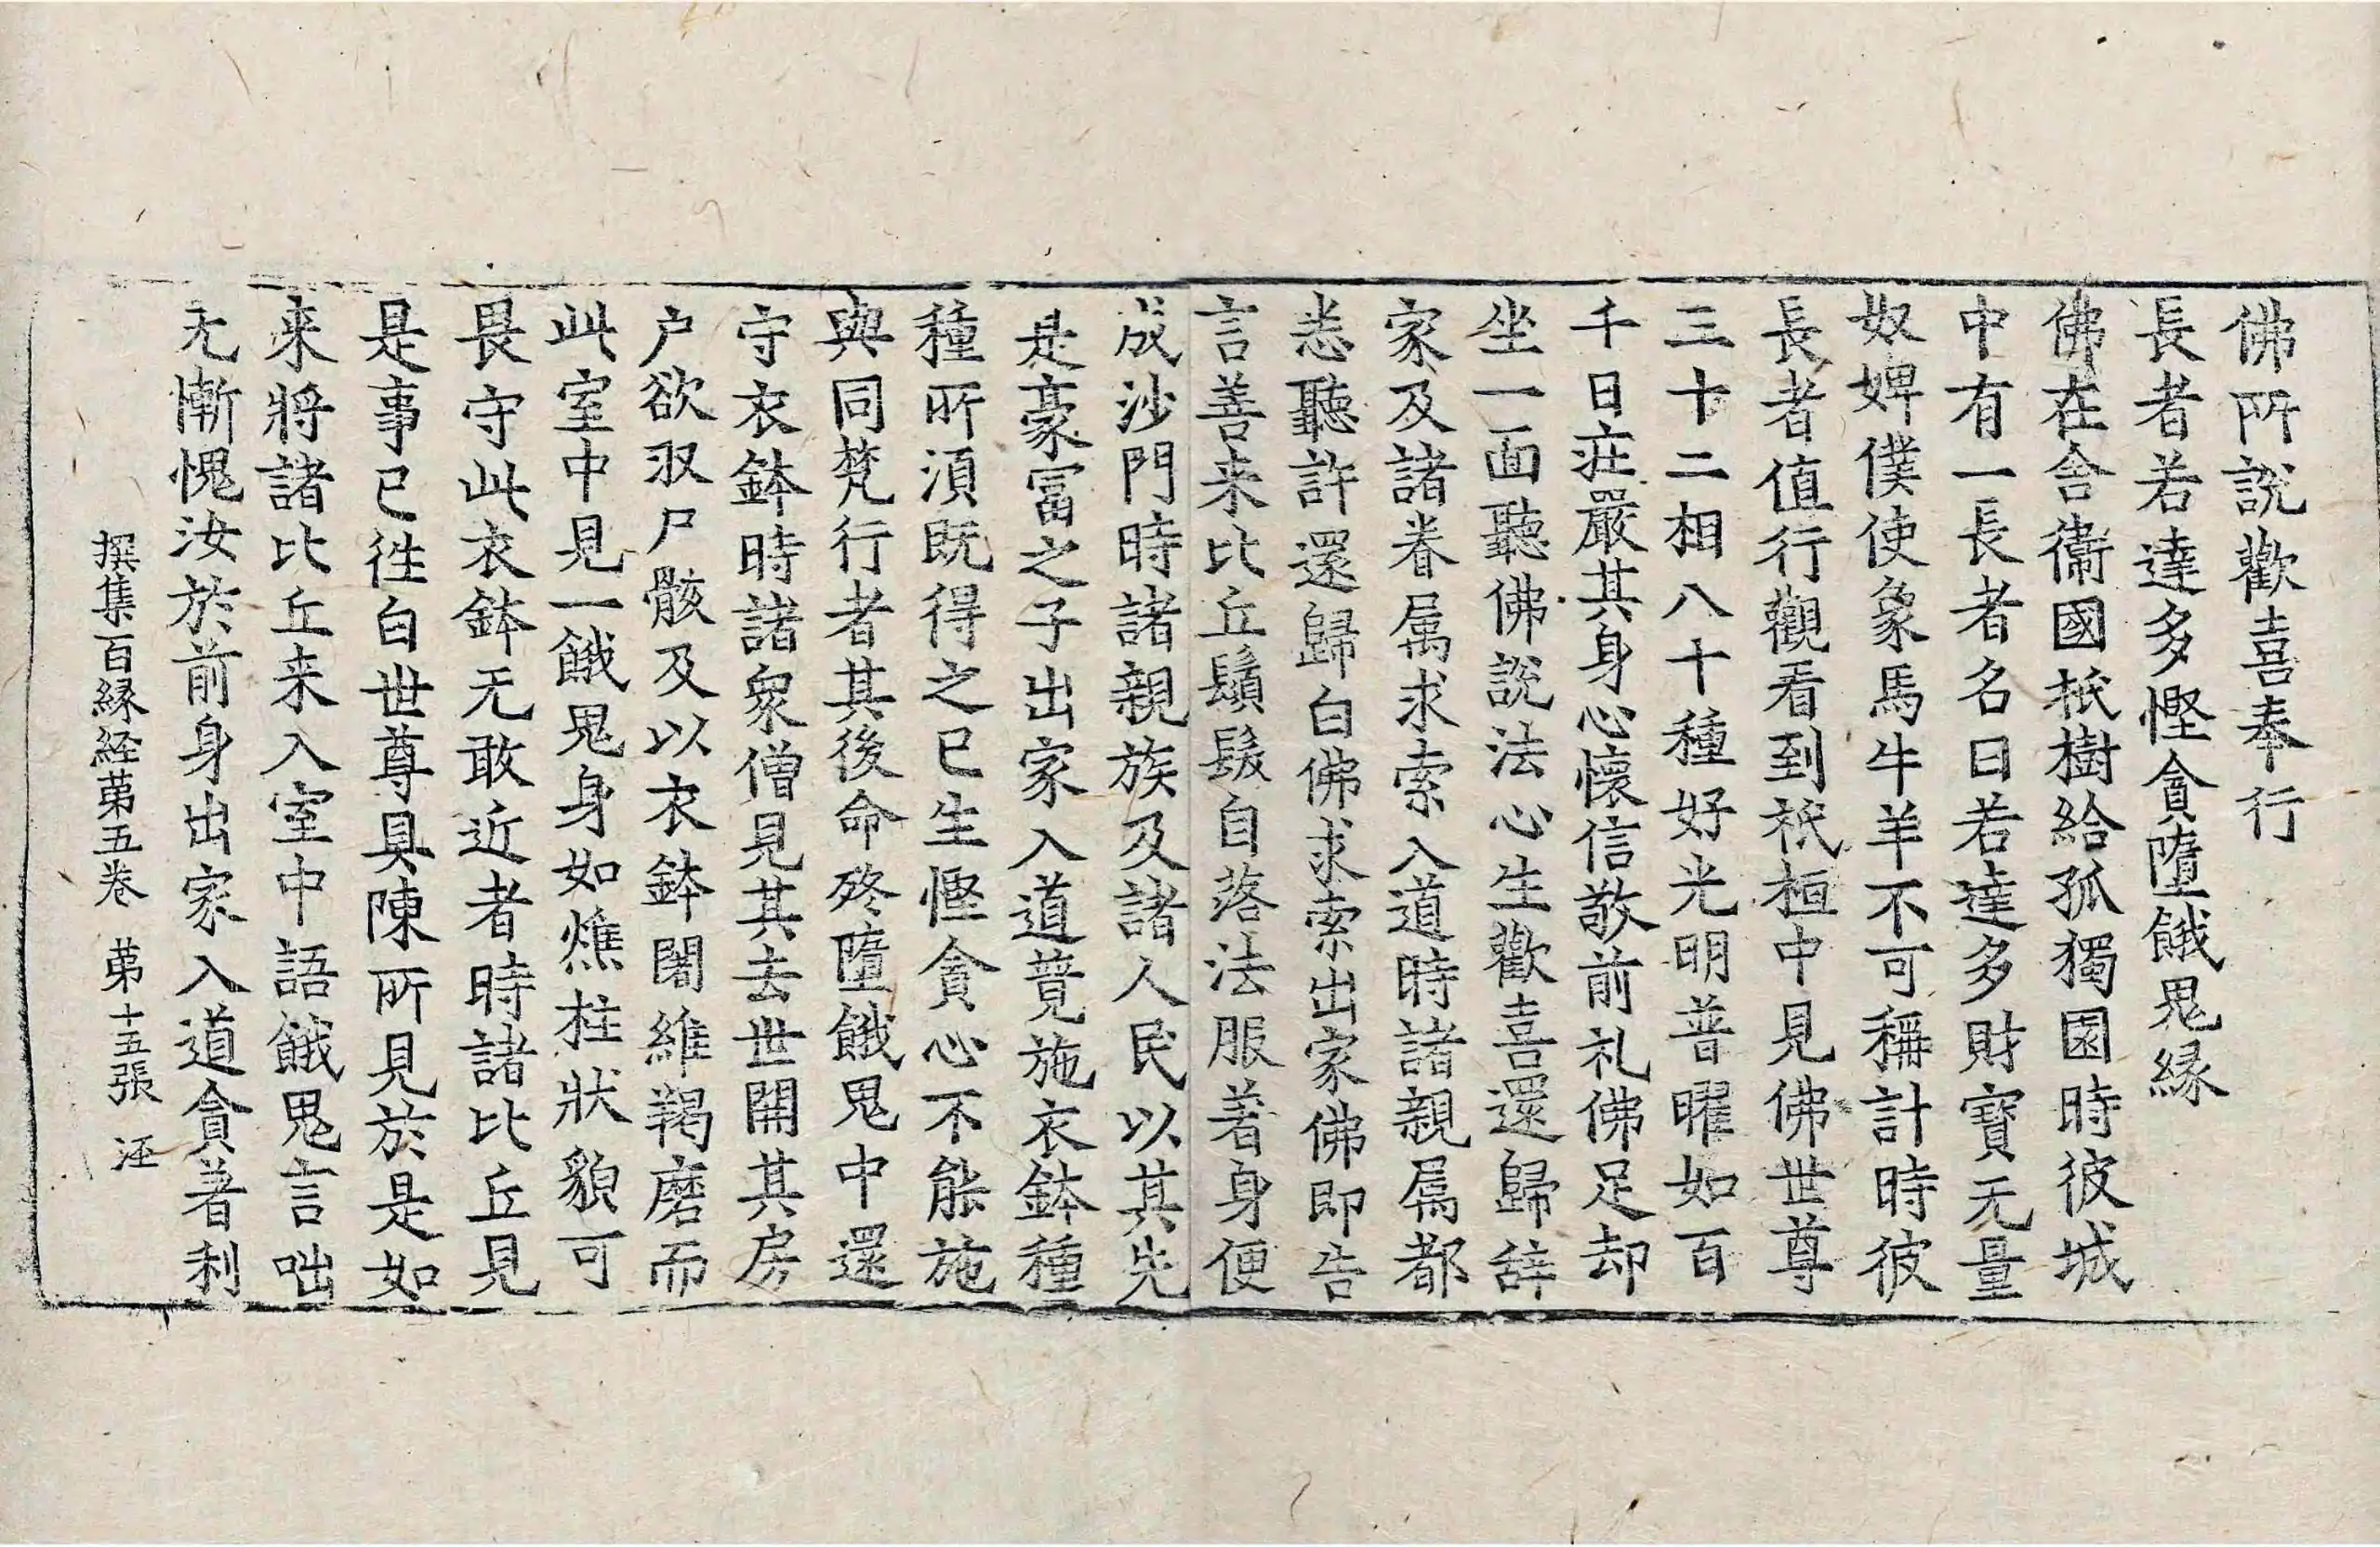 佛所說歡喜奉行
長者若達多慳貪墮餓鬼緣
佛在舍衛國祇樹給孤獨園時彼城
中有一長者名曰若達多財寶无量
奴婢僕使象馬牛羊不可稱計時彼
長者值行觀看到祇桓中見佛世尊
三十二相八十種好光明普曜如百
千日疘嚴其身心懷信敬前礼佛足却
坐一面聽佛說法心生歡喜還歸辝
家及諸眷属求索入道時諸親属都
悉聽許還歸白佛求索出家佛即告
言善来比丘鬚髮自落法服著身便
成沙門時諸親族及諸人民以其先
是豪冨之子出家入道竟施衣鉢種
種所湏既得之已生慳貪心不能施
與同梵行者其後命終墮餓鬼中還
守衣鉢時諸衆僧見其去世開其房
户欲収尸骸及以衣鉢闍維羯磨而
此室中見一餓鬼身如燋柱狀貌可
畏守此衣鉢无敢近者時諸比丘見
是事已徃白世尊具陳所見於是如
来將諸比丘来入室中語餓鬼言咄
无慚愧汝於前身出家入道貪著利
撰集百緣経苐五卷 苐十五張 汪